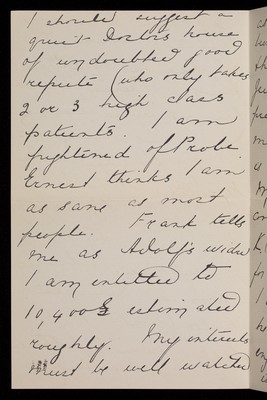 I should suggest a
quiet Doctors house
of undoubted good
repute (who only takes
2 or 3 high class
patients. I am
frightened of Probe.
Ernest thinks I am
as sane as most
people. Frank tells
me as Adolf's widow
I am entitled to
10,400£ estimated
roughly. My interests
must be well watched